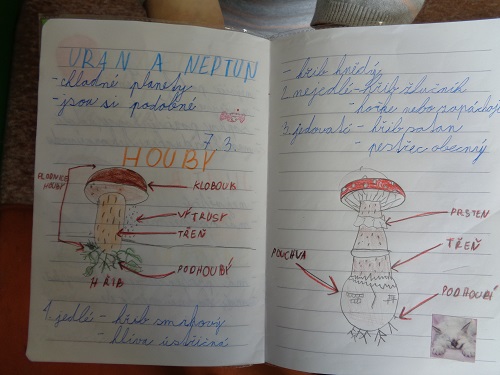 URAN A NEPTUN
- chladné planety
- jsou si podobné
7. 3.
HOUBY
PLODNICE HOUBY
KLOBOUK
VÝTRUSY
TŘEŇ
PODHOUBÍ
HŘIB
1. jedlé - hřib smrkový
- hlíva ústřičná
- hřib hnědý
2. nejedlé - hřib žlučník
hořké nebo zapáchají
3. jedovaté - hřib satan
- pestřec obecný
PRSTEN
TŘEŇ
POCHVA
PODHOUBÍ